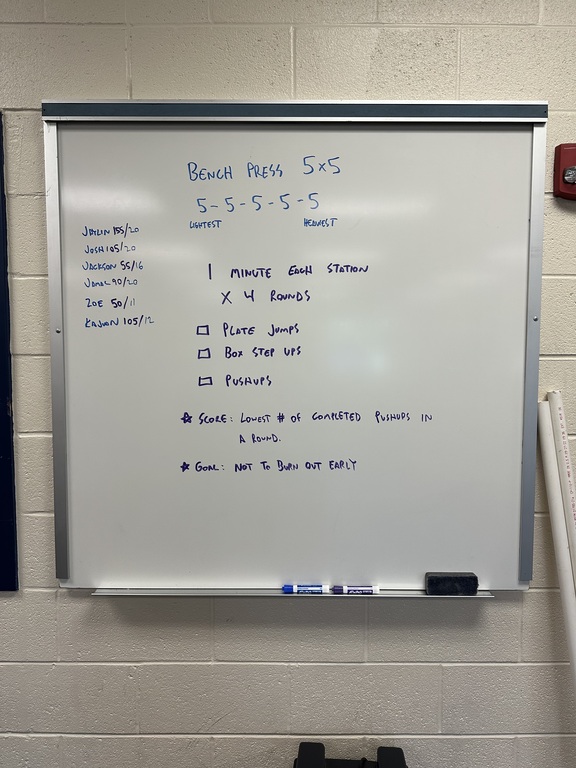 BENCH PRESS 5x5
5-5-5-5-5
LIGHTEST HEAVIEST
JAYLIN 155/20
JOSH 105/20
JACKSON 55/16
JAMAL 90/20
ZOE 50/11
105/12
1 MINUTE EACH STATION
X 4 ROUNDS
PLATE JUMPS
BOX STEP UPS
PUSHUPS
SCORE: LOWEST # OF COMPLETED PUSHUPS IN
A ROUND.
GOAL: NOT TO BURN OUT EARLY